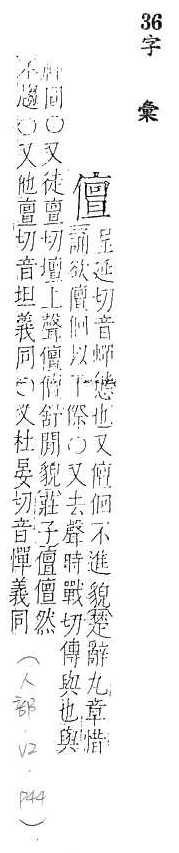 36 字 彙
儃
呈延切音蟬態也又儃佪不進貌楚辭九章惜
誦欲儃佪以干傺○又去聲時戰切傳與也與
同○又徒亶切壇上聲儃儃舒閒貌莊子儃儃然
不趨○又他亶切音坦義同○又杜晏切音憚義同
(人部.V2.P44).